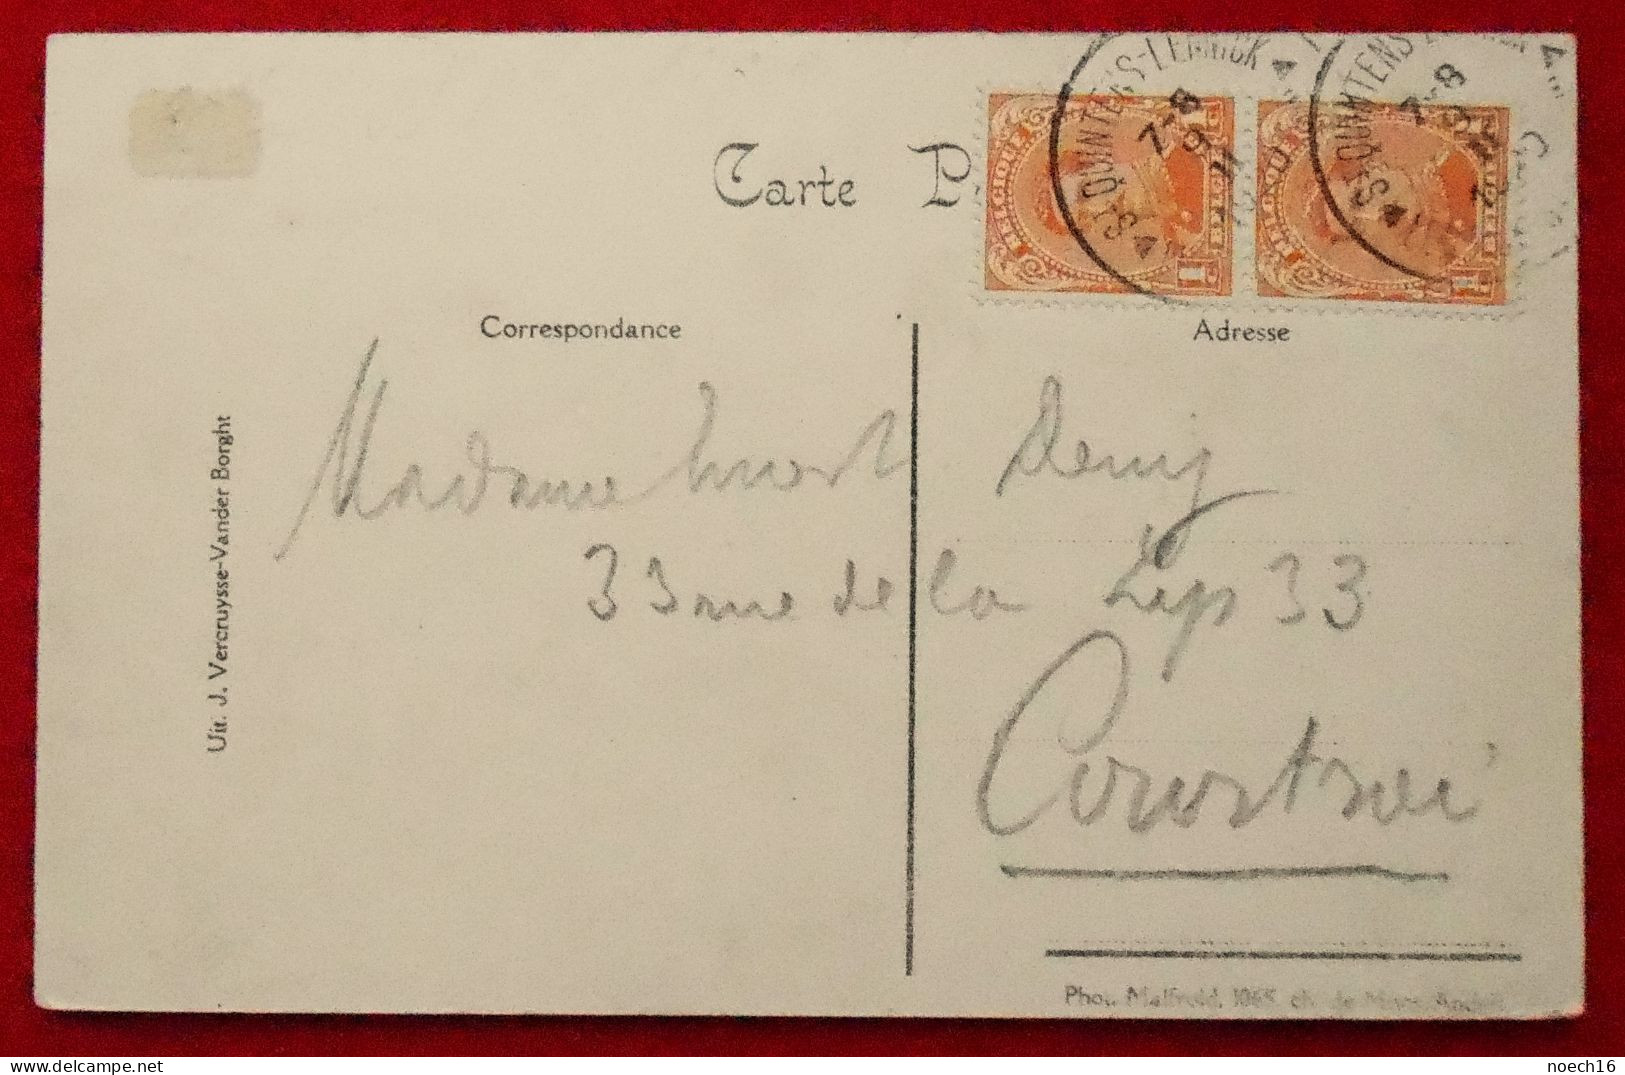 Carte P
Correspondance
Adresse
Uit. J. Vercruysse-Vander Borght
BELGIQUE
1
BELGIË
1
BELGIË
ST QUINTENS-LENNICK
7-8
ST QUINTENS-
7-8
Madame
33 rue de la Lys 33
Courtrai
Phot. Malfroid, 1065, ch. de Mons,
noech16